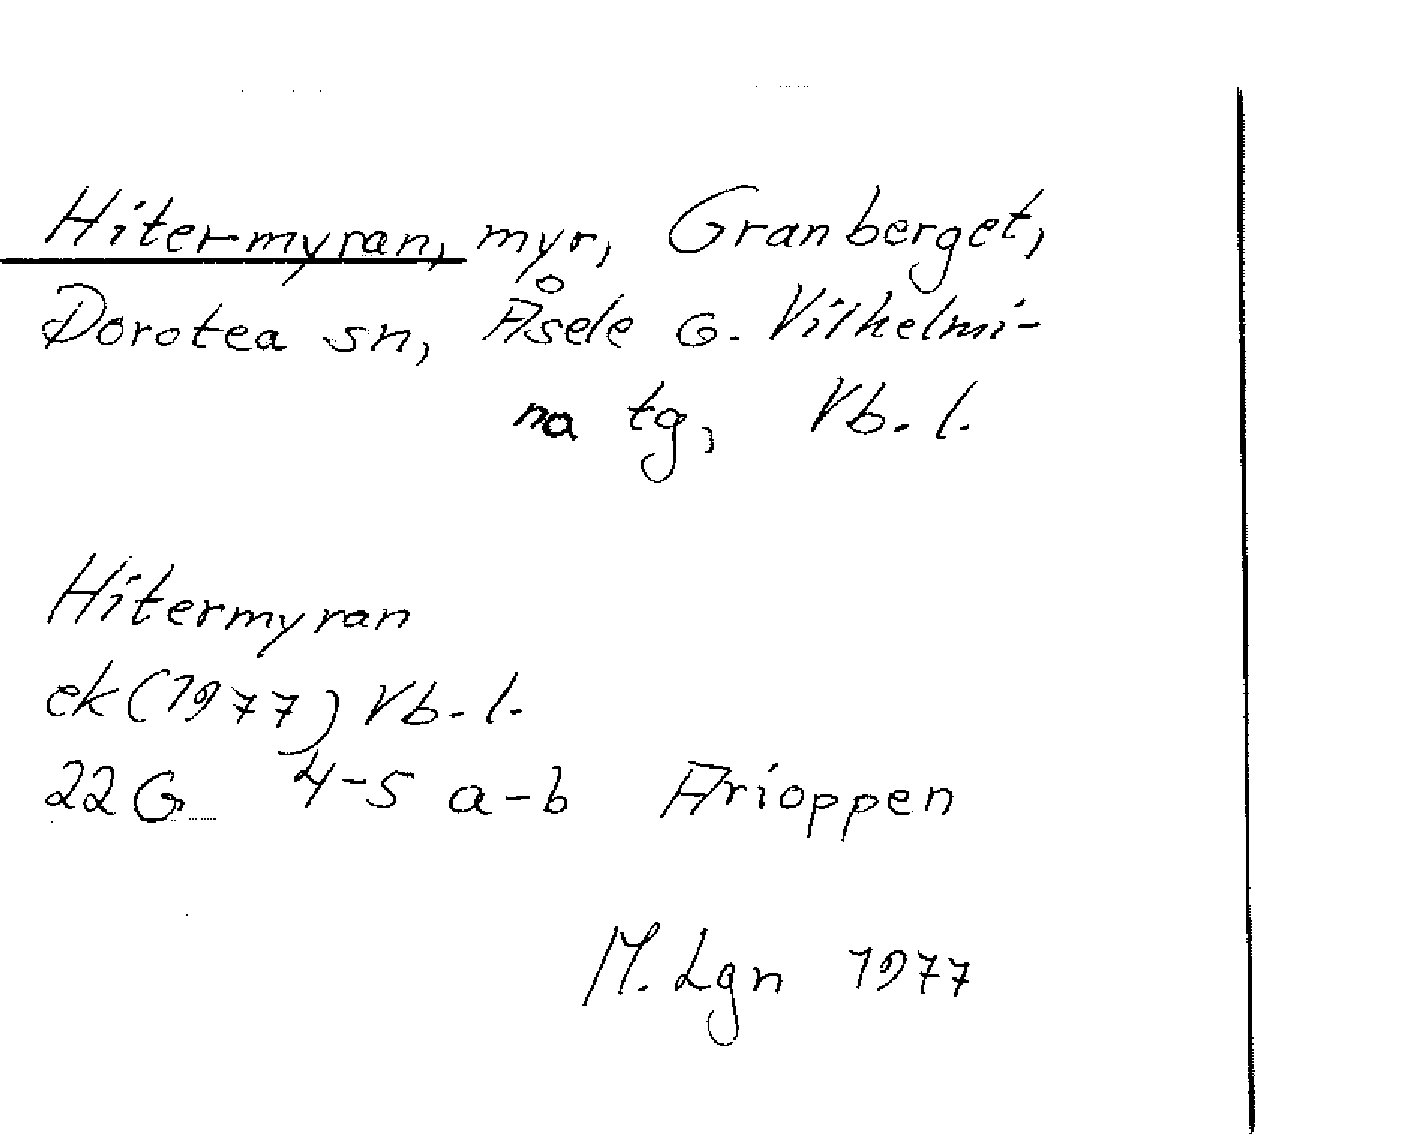 Hitermyran, myr, Granberget,
Dorotea sn, Åsele o. Vilhelmi-
na tg, Vb. l.
Hitermyran
ek (1977) Vb. l.
22 G 4-5 a-b Arioppen
M. Lgn 1977